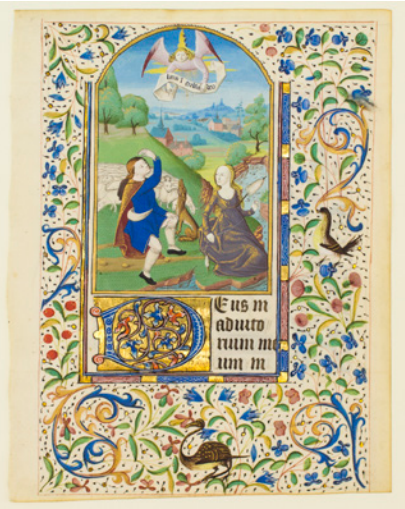 Deus in
adiuto
rium me
um in